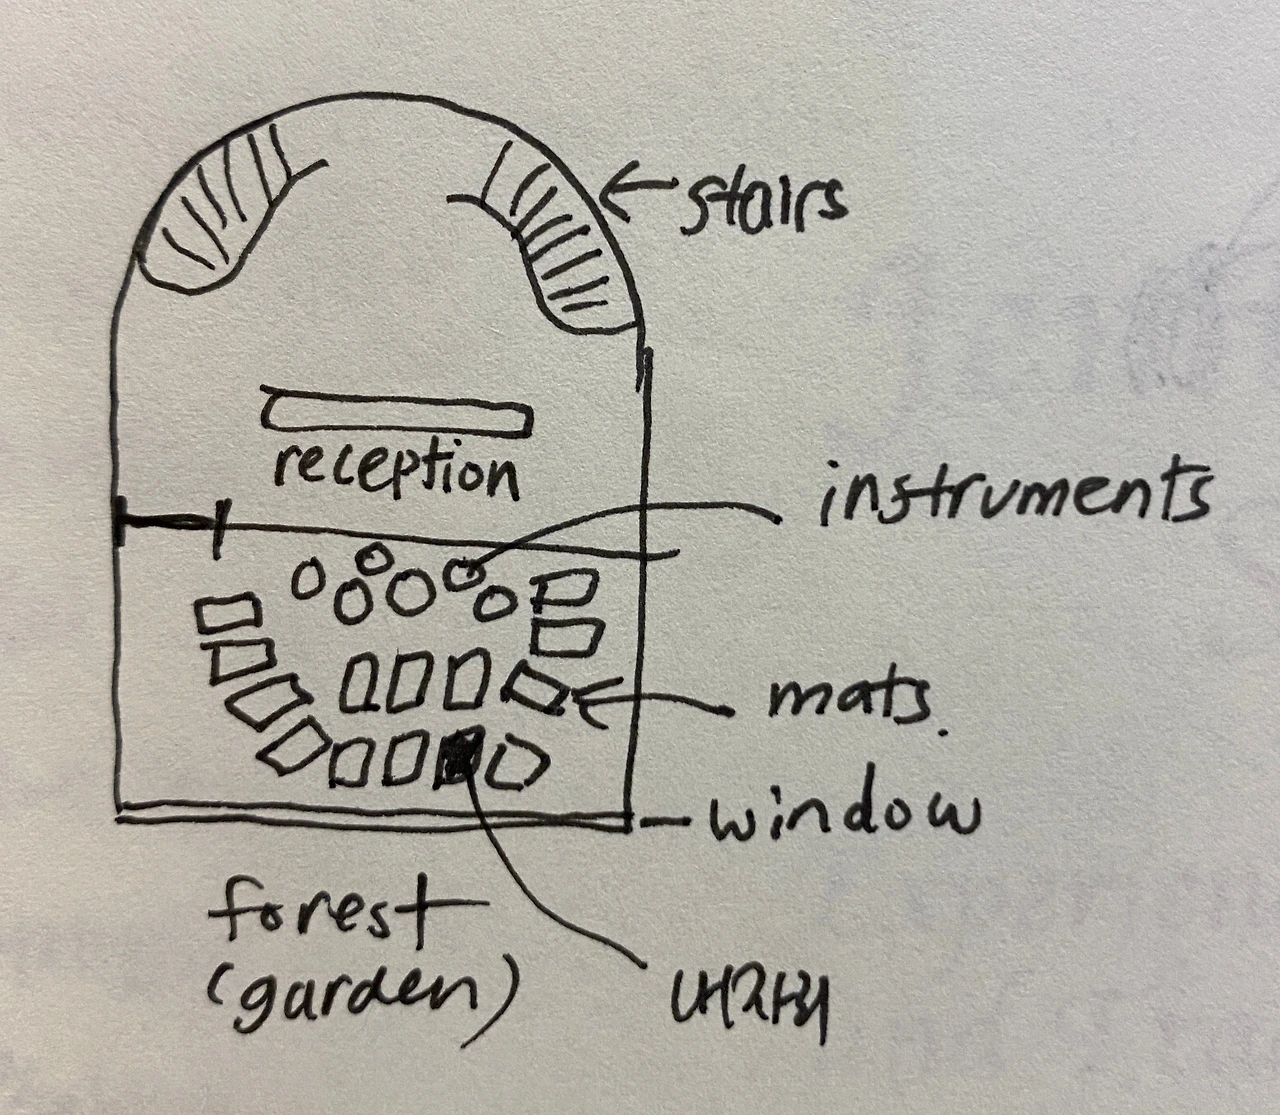 stairs
reception
instruments
mats.
window
forest
(garden)